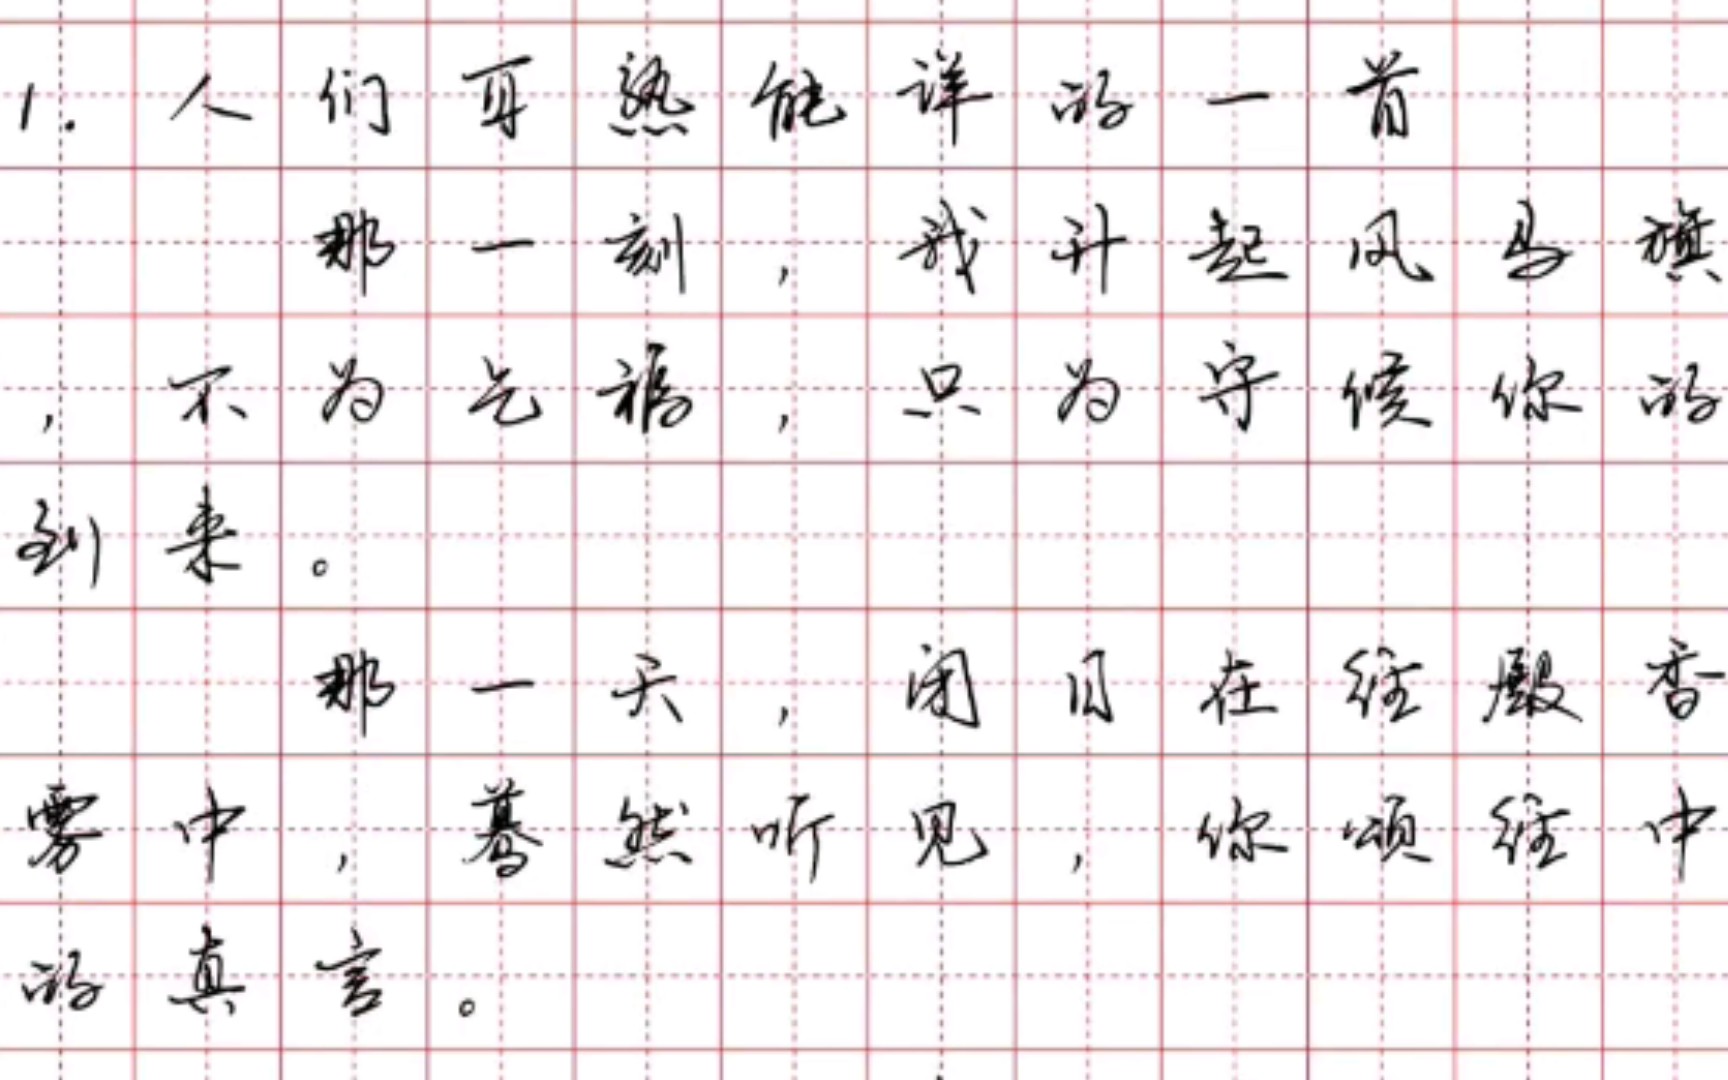 1.人们耳熟能详的一首
那一刻,我升起风马旗
,不为乞福,只为守候你的
到来。
那一天,闭目在经殿香
雾中,蓦然听见,你颂经中
的真言。